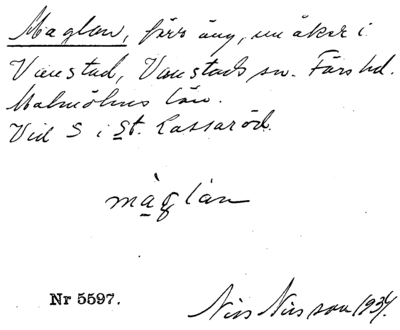 Maglan, förr äng, nu åker i
Vanstad, Vanstads sn. Färs hd.
Malmöhus län.
Vid S i St. Lassaröd.
màglàn
Nr 5597.
Nils Nilsson 1934.